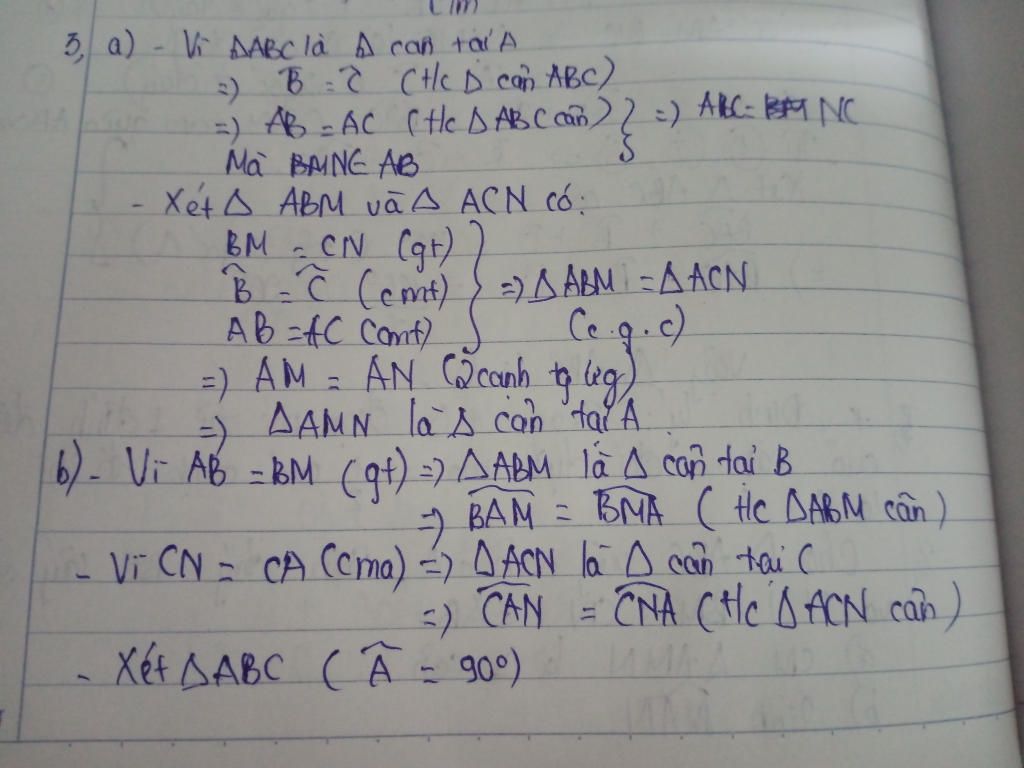 3, a) - Vì △ABC là △ cân tại A
=) B̂ = Ĉ (t/c △ cân ABC)
=) AB = AC (t/c △ABC cân) } =) NC
Mà AB
- Xét △ ABM và △ ACN có:
BM = CN (gt)
B̂ = Ĉ (cmt) } =) △ABM = △ACN
AB = AC (cmt) (c.g.c)
=) AM = AN (2 cạnh tg ứg)
=) △AMN là △ cân tại A
b) - Vì AB = BM (gt) =) △ABM là △ cân tại B
=) BAM = BMA (t/c △ABM cân)
- Vì CN = CA (cma) =) △ACN là △ cân tại C
=) CAN = CNA (t/c △ ACN cân)
- Xét △ABC (Â = 90°)